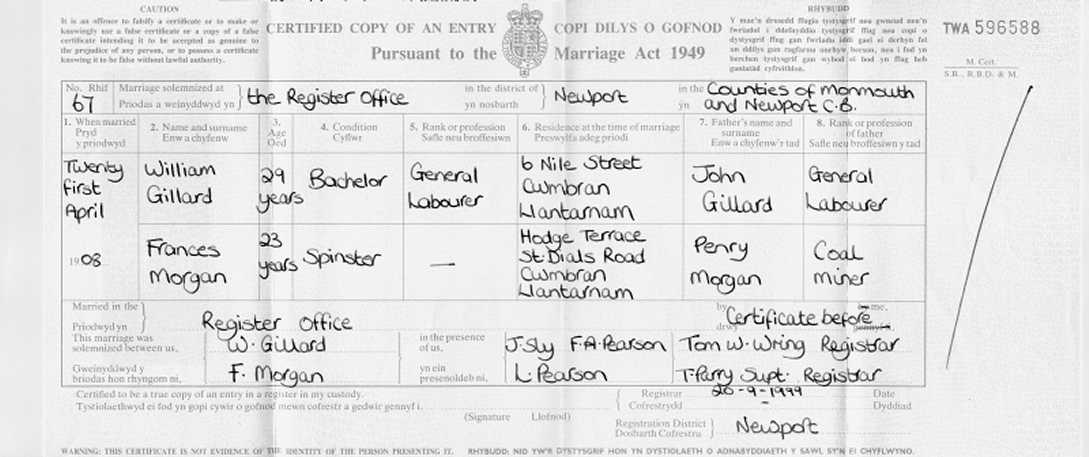 CAUTION
It is an offence to falsify a certificate or to make or
knowingly use a false certificate or a copy of a false
certificate intending it to be accepted as genuine to
the prejudice of any person, or to possess a certificate
knowing it to be false without lawful authority.
CERTIFIED COPY OF AN ENTRY
Pursuant to the
COPI DILYS O GOFNOD
Marriage Act 1949
RHYBUDD
TWA 596588
M. Cert.
S.B., R.B.D. & M.
No. Rhif
67
Marriage solemnized at
Priodas a weinyddwyd yn
the Register Office
in the district of
yn nosbarth
Newport
in the
yn
Counties of Monmouth
and Newport C.B.
1. When married
Pryd
y priodwyd
2. Name and surname
Enw a chyfenw
3.
Age
Oed
4. Condition
Cyflwr
5. Rank or profession
Safle neu broffesiwn
6. Residence at the time of marriage
Preswylfa adeg priodi
7. Father's name and
surname
Enw a chyfenw'r tad
8. Rank or profession
of father
Safle neu broffesiwn y tad
Twenty
first
April
1908
William
Gillard
29
years
Bachelor
General
Labourer
6 Nile Street
Cwmbran
Llantarnam
John
Gillard
General
Labourer
Frances
Morgan
23
years
Spinster
—
Hodge Terrace
St Dials Road
Cwmbran
Llantarnam
Penry
Morgan
Coal
miner
Married in the
Priodwyd yn
Register Office
by
drwy
Certificate before
me.
This marriage was
solemnized between us,
Gweinyddwyd y
briodas hon rhyngom ni,
W. Gillard
F. Morgan
in the presence
of us,
yn ein
presenoldeb ni,
J. Sly F.A. Pearson
L. Pearson
Tom W. Wring Registrar
T. Parry Supt. Registrar
Certified to be a true copy of an entry in a register in my custody.
Tystiolaethwyd ei fod yn gopi cywir o gofnod mewn cofrestr a gedwir gennyf i.
(Signature Llofnod)
Registrar
Cofrestrydd
20-9-1999
Date
Dyddiad
Registration District
Dosbarth Cofrestru
Newport
WARNING: THIS CERTIFICATE IS NOT EVIDENCE OF THE IDENTITY OF THE PERSON PRESENTING IT.
RHYBUDD: NID YW'R DYSTYSGRIF HON YN DYSTIOLAETH O ADNABYDDIAETH Y SAWL SY'N EI CHYFLWYNO.